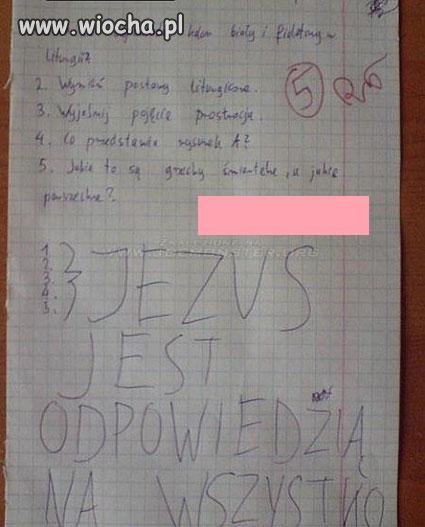 www.wiocha.pl
biały i fioletowy w
liturgii?
2. Wymień postawy liturgiczne.
3. Wyjaśnij pojęcie prostracja.
4. Co przedstawia rysunek A?
5. Jakie to są grzechy śmiertelne, a jakie
powszednie?
5
1.
2.
3.
4.
5.
} JEZUS
JEST
ODPOWIEDZIĄ
NA WSZYSTKO